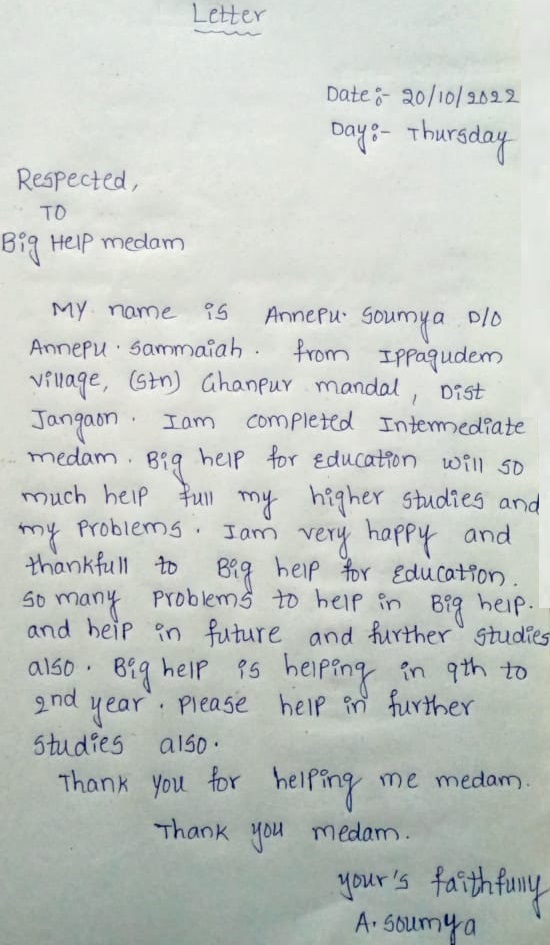 Letter
Date :- 20/10/2022
Day :- Thursday
Respected,
TO
Big Help medam
MY name is Annepu. Soumya D/O
Annepu. Sammaiah. from Ippagudem
village, (Stn) Ghanpur mandal, Dist
Jangaon. Iam completed Intermediate
medam. Big help for Education will so
much help full my higher studies and
my Problems. Iam very happy and
thankfull to Big help for Education.
So many Problems to help in Big help.
and help in future and further studies
also. Big help is helping in 9th to
2nd year. Please help in further
studies also.
Thank you for helping me medam.
Thank you medam.
your's faithfully
A. Soumya